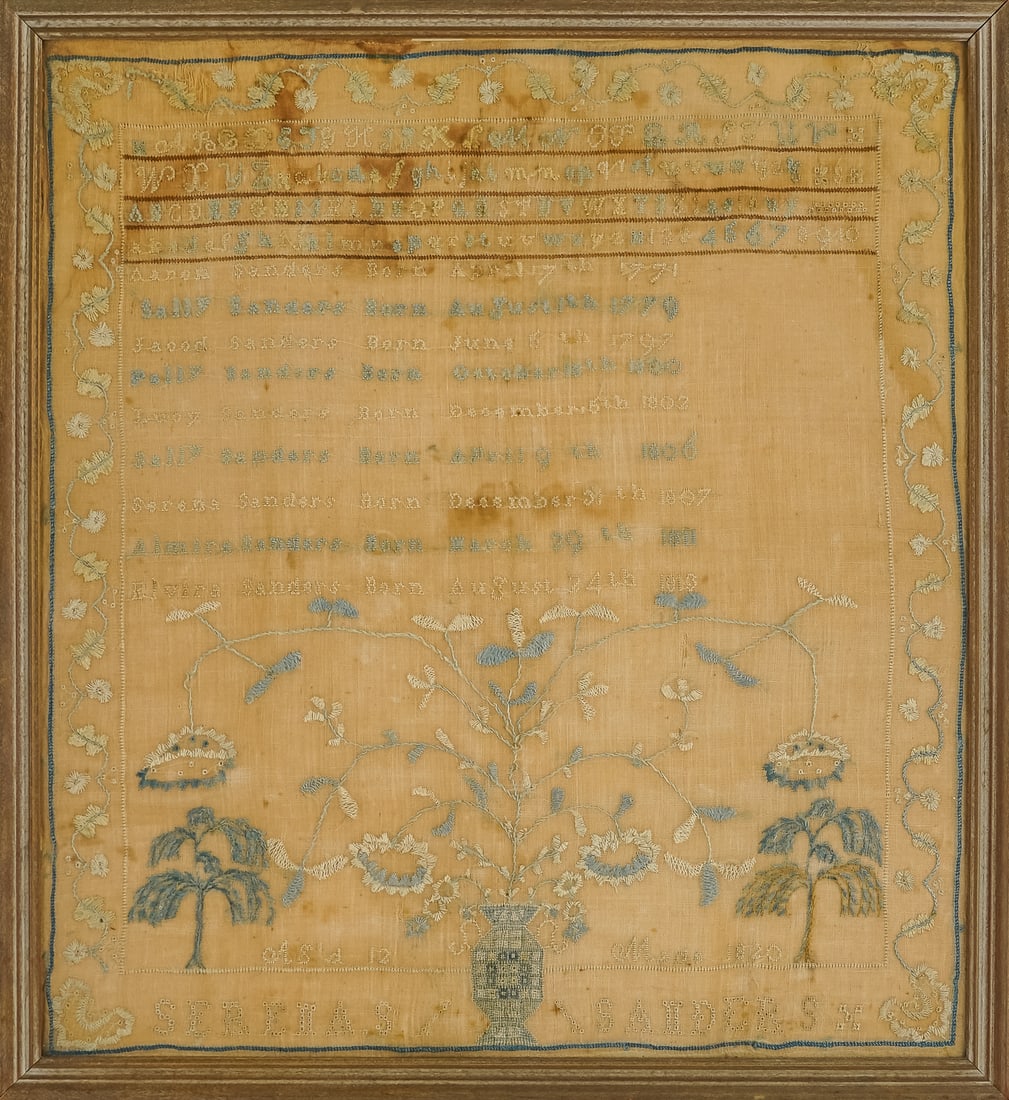 A B C D E F G H I J K L M N O P Q R S T U V
W X Y Z a b c d e f g h i j k l m n o p q r s t u v w x y z
A B C D E F G H I J K L M N O P Q R S T U V W X Y Z
a b c d e f g h i j k l m n o p q r s t u v w x y z 1 2 3 4 5 6 7 8 9 10
Aaron Sanders Born April 7th 1771
Sally Sanders Born August 1779
Jacob Sanders Born June th 1797
Polly Sanders Born October th 1800
Lucy Sanders Born December 6th 1802
Sally Sanders Born April 9 th 1806
Serena Sanders Born December 31 th 1807
Almira Sanders Born March 29 th 1811
Elvira Sanders Born August 24th 1813
AEtd 12 1820
SERENA S SANDERS